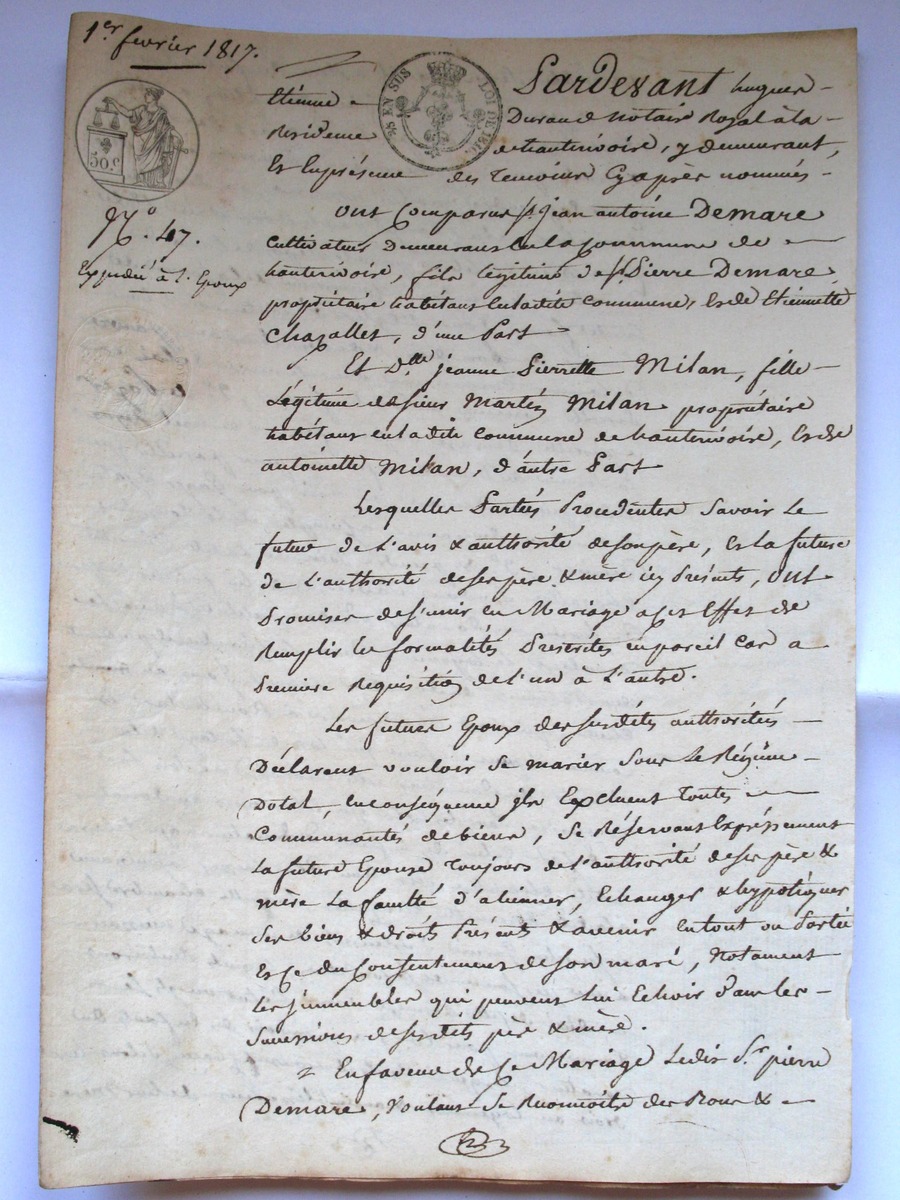 1er fevrier 1817.
50.c
75 EN SUS
LOI DE 1816
No. 47.
Expedié à l'Epoux
Pardevant hugues
Etienne Durand Notaire Royal à la
Residence de hauterivoire, y demeurant,
Et En présence des Temoins Cy après nommés
ont Comparus Sr. jean antoine Demare
cultivateur Demeurant en la Commune de
hauterivoire, fils légitime de Sr. Pierre Demare
propriétaire habitant en ladite commune, et de Etiennette
Chazalles, d'une Part
Et Dlle jeanne Pierrette Milan, fille
Légitime de sieur Martin Milan propriétaire
habitant en ladite commune de hauterivoire, et de
antoinette Milan, d'autre Part
Lesquelles Parties Procedentes Savoir Le
futur de L'avis & authorité de son père, et La future
de L'authorité de ses père & mère icy Présents, ont
Promises de s'unir en Mariage a cet Effet de
Remplir les formalités Prescrites en pareil Cas a
Première Requisition de l'un à L'autre.
Les futurs Epoux des susdites authorités
Déclarent vouloir Se marier Sous Le Régime
Dotal, En conséquence jls Excluent Toutes
Communautés de biens, Se Réservant Expréssement
La future Epouse Toujours de l'authorité de ses père &
mère La faculté d'alienner, Echanger & hypotéquer
Ses biens & droits Présents & avenir en tout ou Partie
Et ce du Consentement de son mari, Notament
Les jmmeubles qui peuvent Lui Echoir Dans les
Successions de ses dits père & mère.
En faveur de Ce Mariage Ledit Sr. pierre
Demare, Voulant Se Reconnoître des Soins &